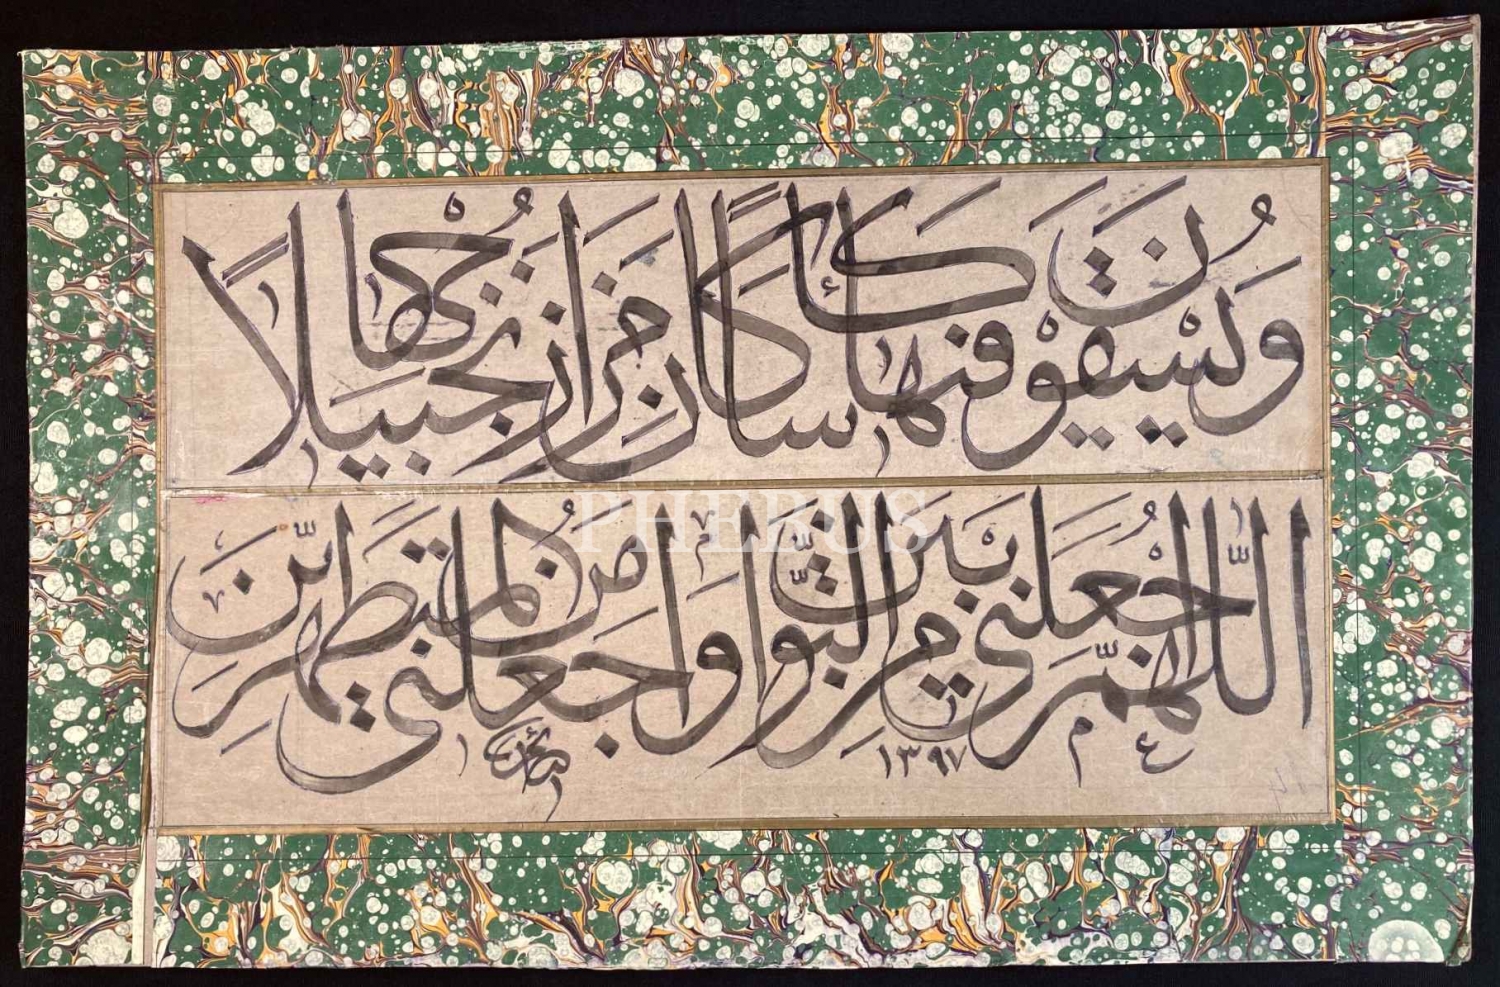 وَيُسْقَوْنَ فِيهَا كَأْسًا كَانَ مِزَاجُهَا زَنجَبِيلًا
اللّٰهُمَّ اجْعَلْنِي مِنَ التَّوَّابِينَ وَاجْعَلْنِي مِنَ الْمُتَطَهِّرِينَ
١٣٩٧
PHEBUS